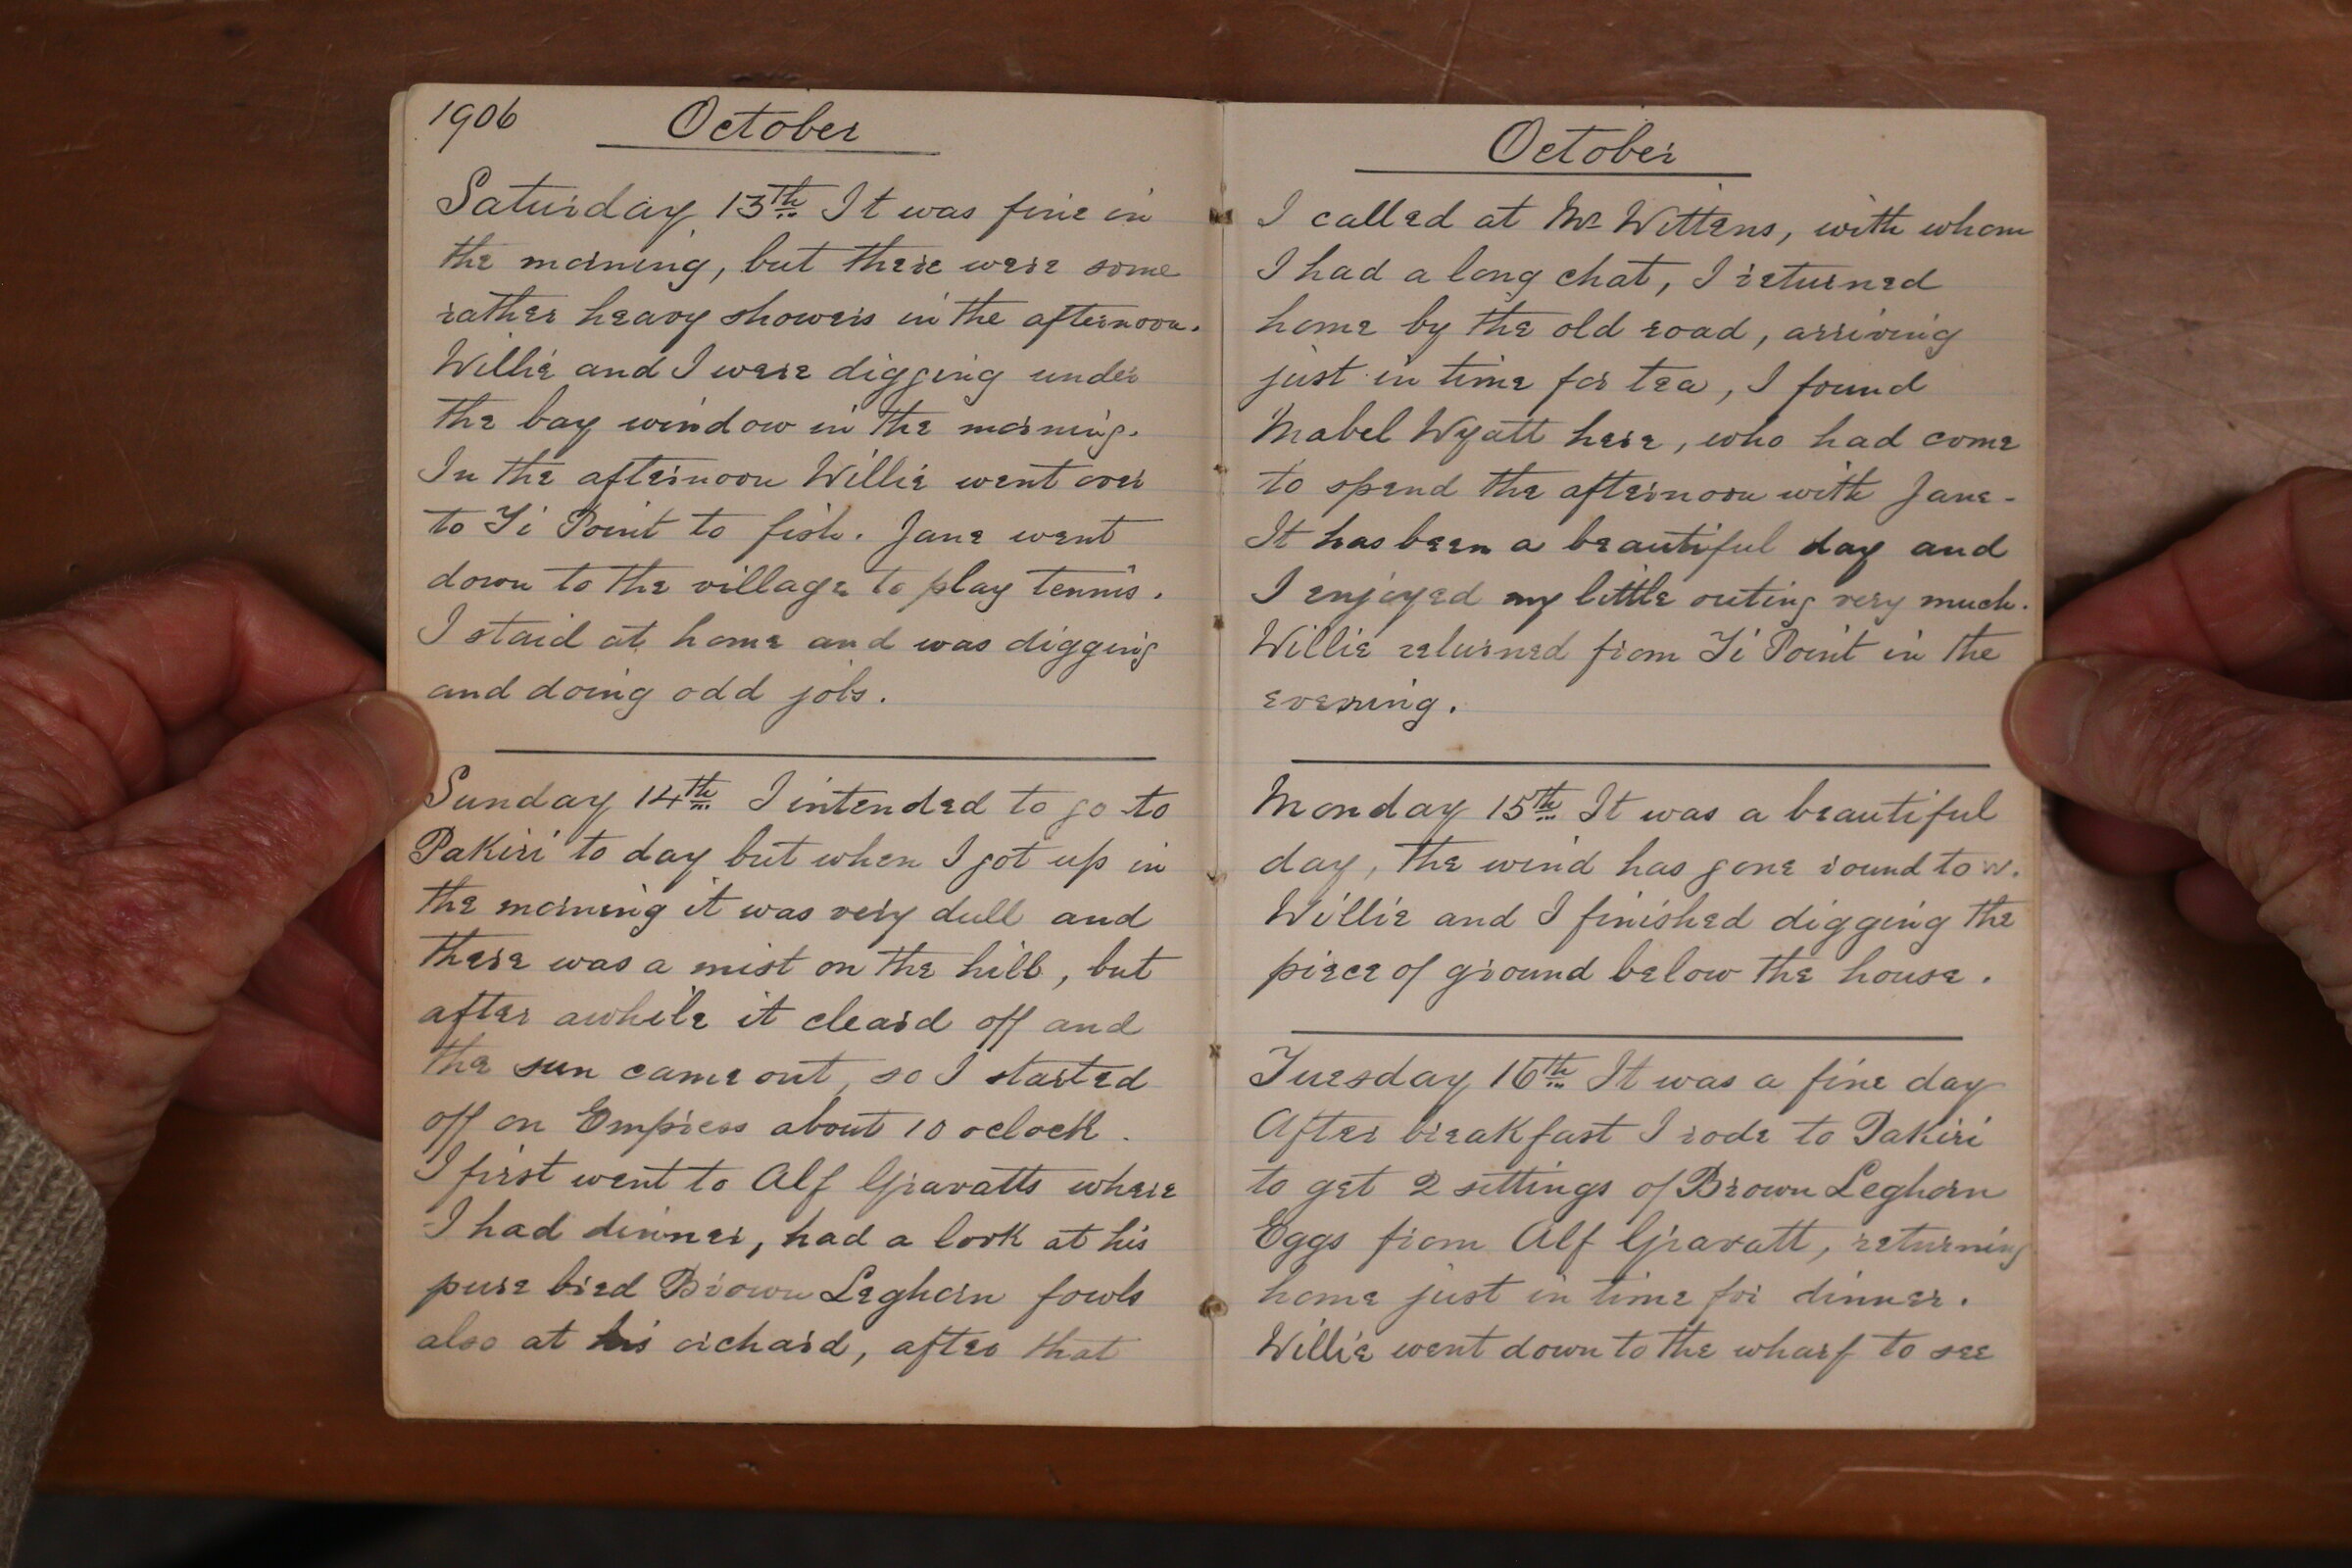 1906
October
Saturday 13th It was fine in
the morning, but there were some
rather heavy showers in the afternoon.
Willie and I were digging under
the bay window in the morning.
In the afternoon Willie went over
to Ti Point to fish. Jane went
down to the village to play tennis.
I staid at home and was digging
and doing odd jobs.
Sunday 14th I intended to go to
Pakiri to day but when I got up in
the morning it was very dull and
there was a mist on the hill, but
after awhile it cleard off and
the sun came out, so I started
off on Empress about 10 oclock.
I first went to Alf Gravatts where
I had dinner, had a look at his
pure bred Brown Leghorn fowls
also at his orchard, after that
October
I called at Mr Wittens, with whom
I had a long chat, I returned
home by the old road, arriving
just in time for tea, I found
Mabel Wyatt here, who had come
to spend the afternoon with Jane-
It has been a beautiful day and
I enjoyed my little outing very much.
Willie returned from Ti Point in the
evening.
Monday 15th It was a beautiful
day, the wind has gone round to W.
Willie and I finished digging the
piece of ground below the house.
Tuesday 16th It was a fine day
After breakfast I rode to Pakiri
to get 2 settings of Brown Leghorn
Eggs from Alf Gravatt, returning
home just in time for dinner.
Willie went down to the wharf to see